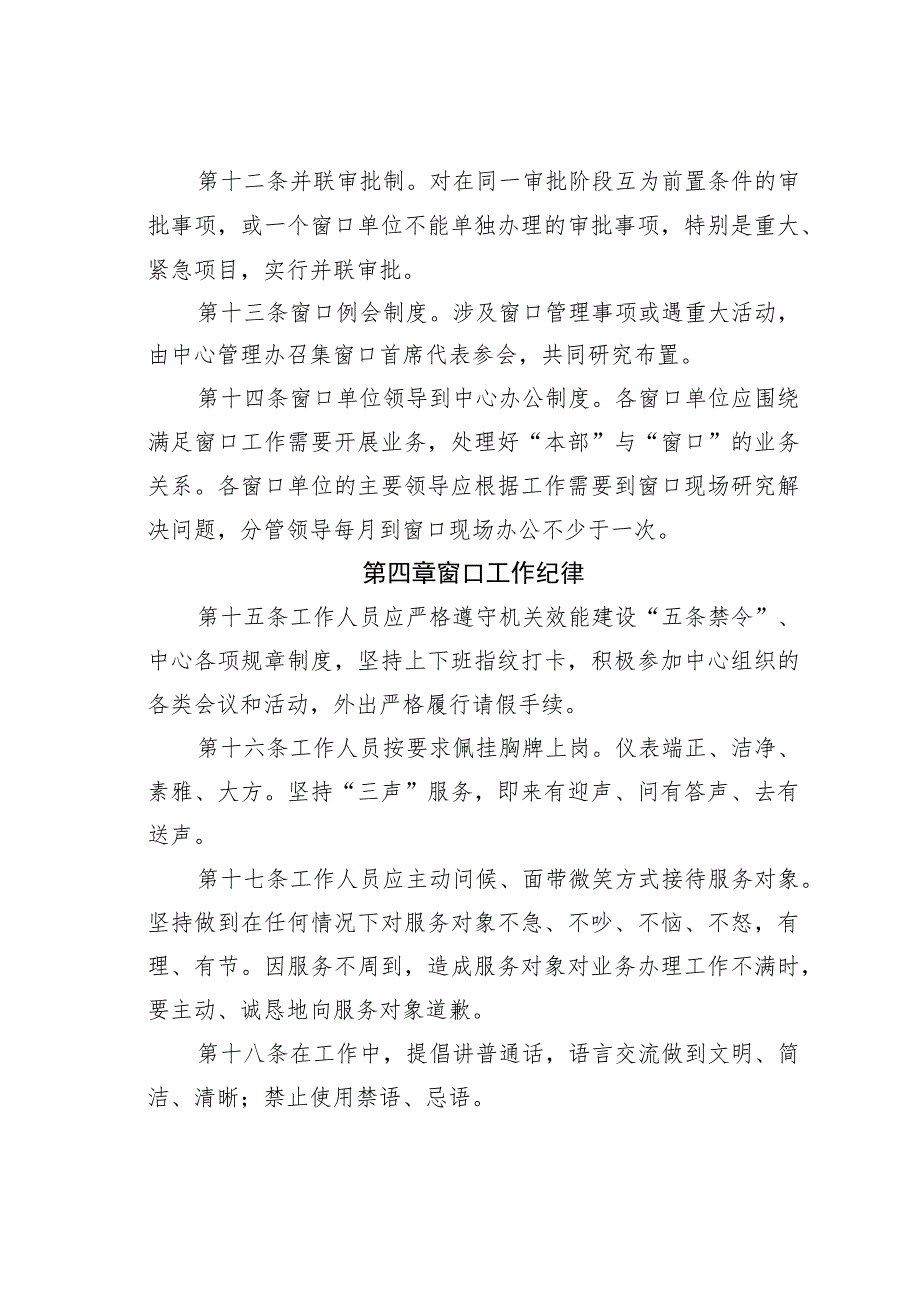 第十二条并联审批制。对在同一审批阶段互为前置条件的审
批事项，或一个窗口单位不能单独办理的审批事项，特别是重大、
紧急项目，实行并联审批。
第十三条窗口例会制度。涉及窗口管理事项或遇重大活动，
由中心管理办召集窗口首席代表参会，共同研究布置。
第十四条窗口单位领导到中心办公制度。各窗口单位应围绕
满足窗口工作需要开展业务，处理好“本部”与“窗口”的业务
关系。各窗口单位的主要领导应根据工作需要到窗口现场研究解
决问题，分管领导每月到窗口现场办公不少于一次。
第四章窗口工作纪律
第十五条工作人员应严格遵守机关效能建设“五条禁令”、
中心各项规章制度，坚持上下班指纹打卡，积极参加中心组织的
各类会议和活动，外出严格履行请假手续。
第十六条工作人员按要求佩挂胸牌上岗。仪表端正、洁净、
素雅、大方。坚持“三声”服务，即来有迎声、问有答声、去有
送声。
第十七条工作人员应主动问候、面带微笑方式接待服务对象。
坚持做到在任何情况下对服务对象不急、不吵、不恼、不怒，有
理、有节。因服务不周到，造成服务对象对业务办理工作不满时，
要主动、诚恳地向服务对象道歉。
第十八条在工作中，提倡讲普通话，语言交流做到文明、简
洁、清晰；禁止使用禁语、忌语。